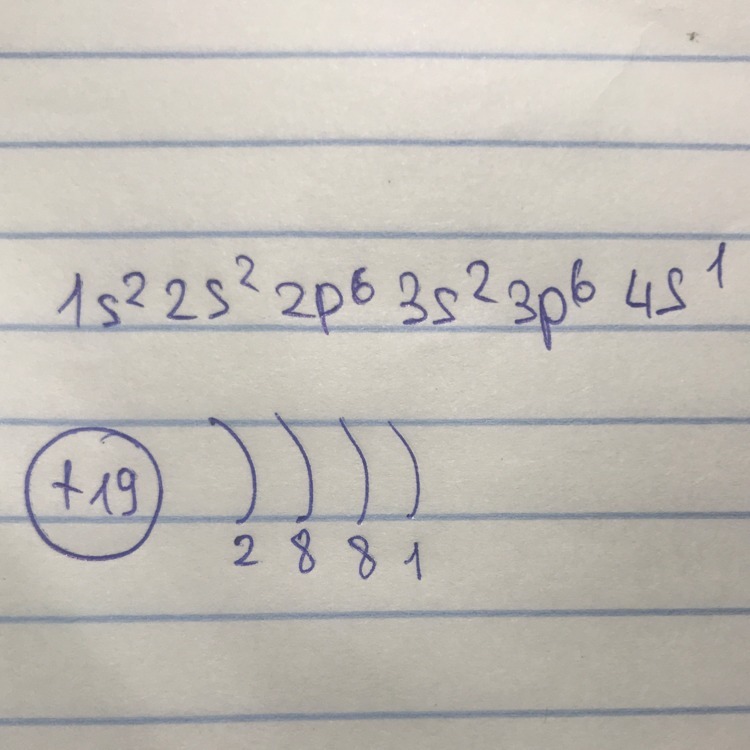 1s² 2s² 2p⁶ 3s² 3p⁶ 4s¹
+19 2 8 8 1